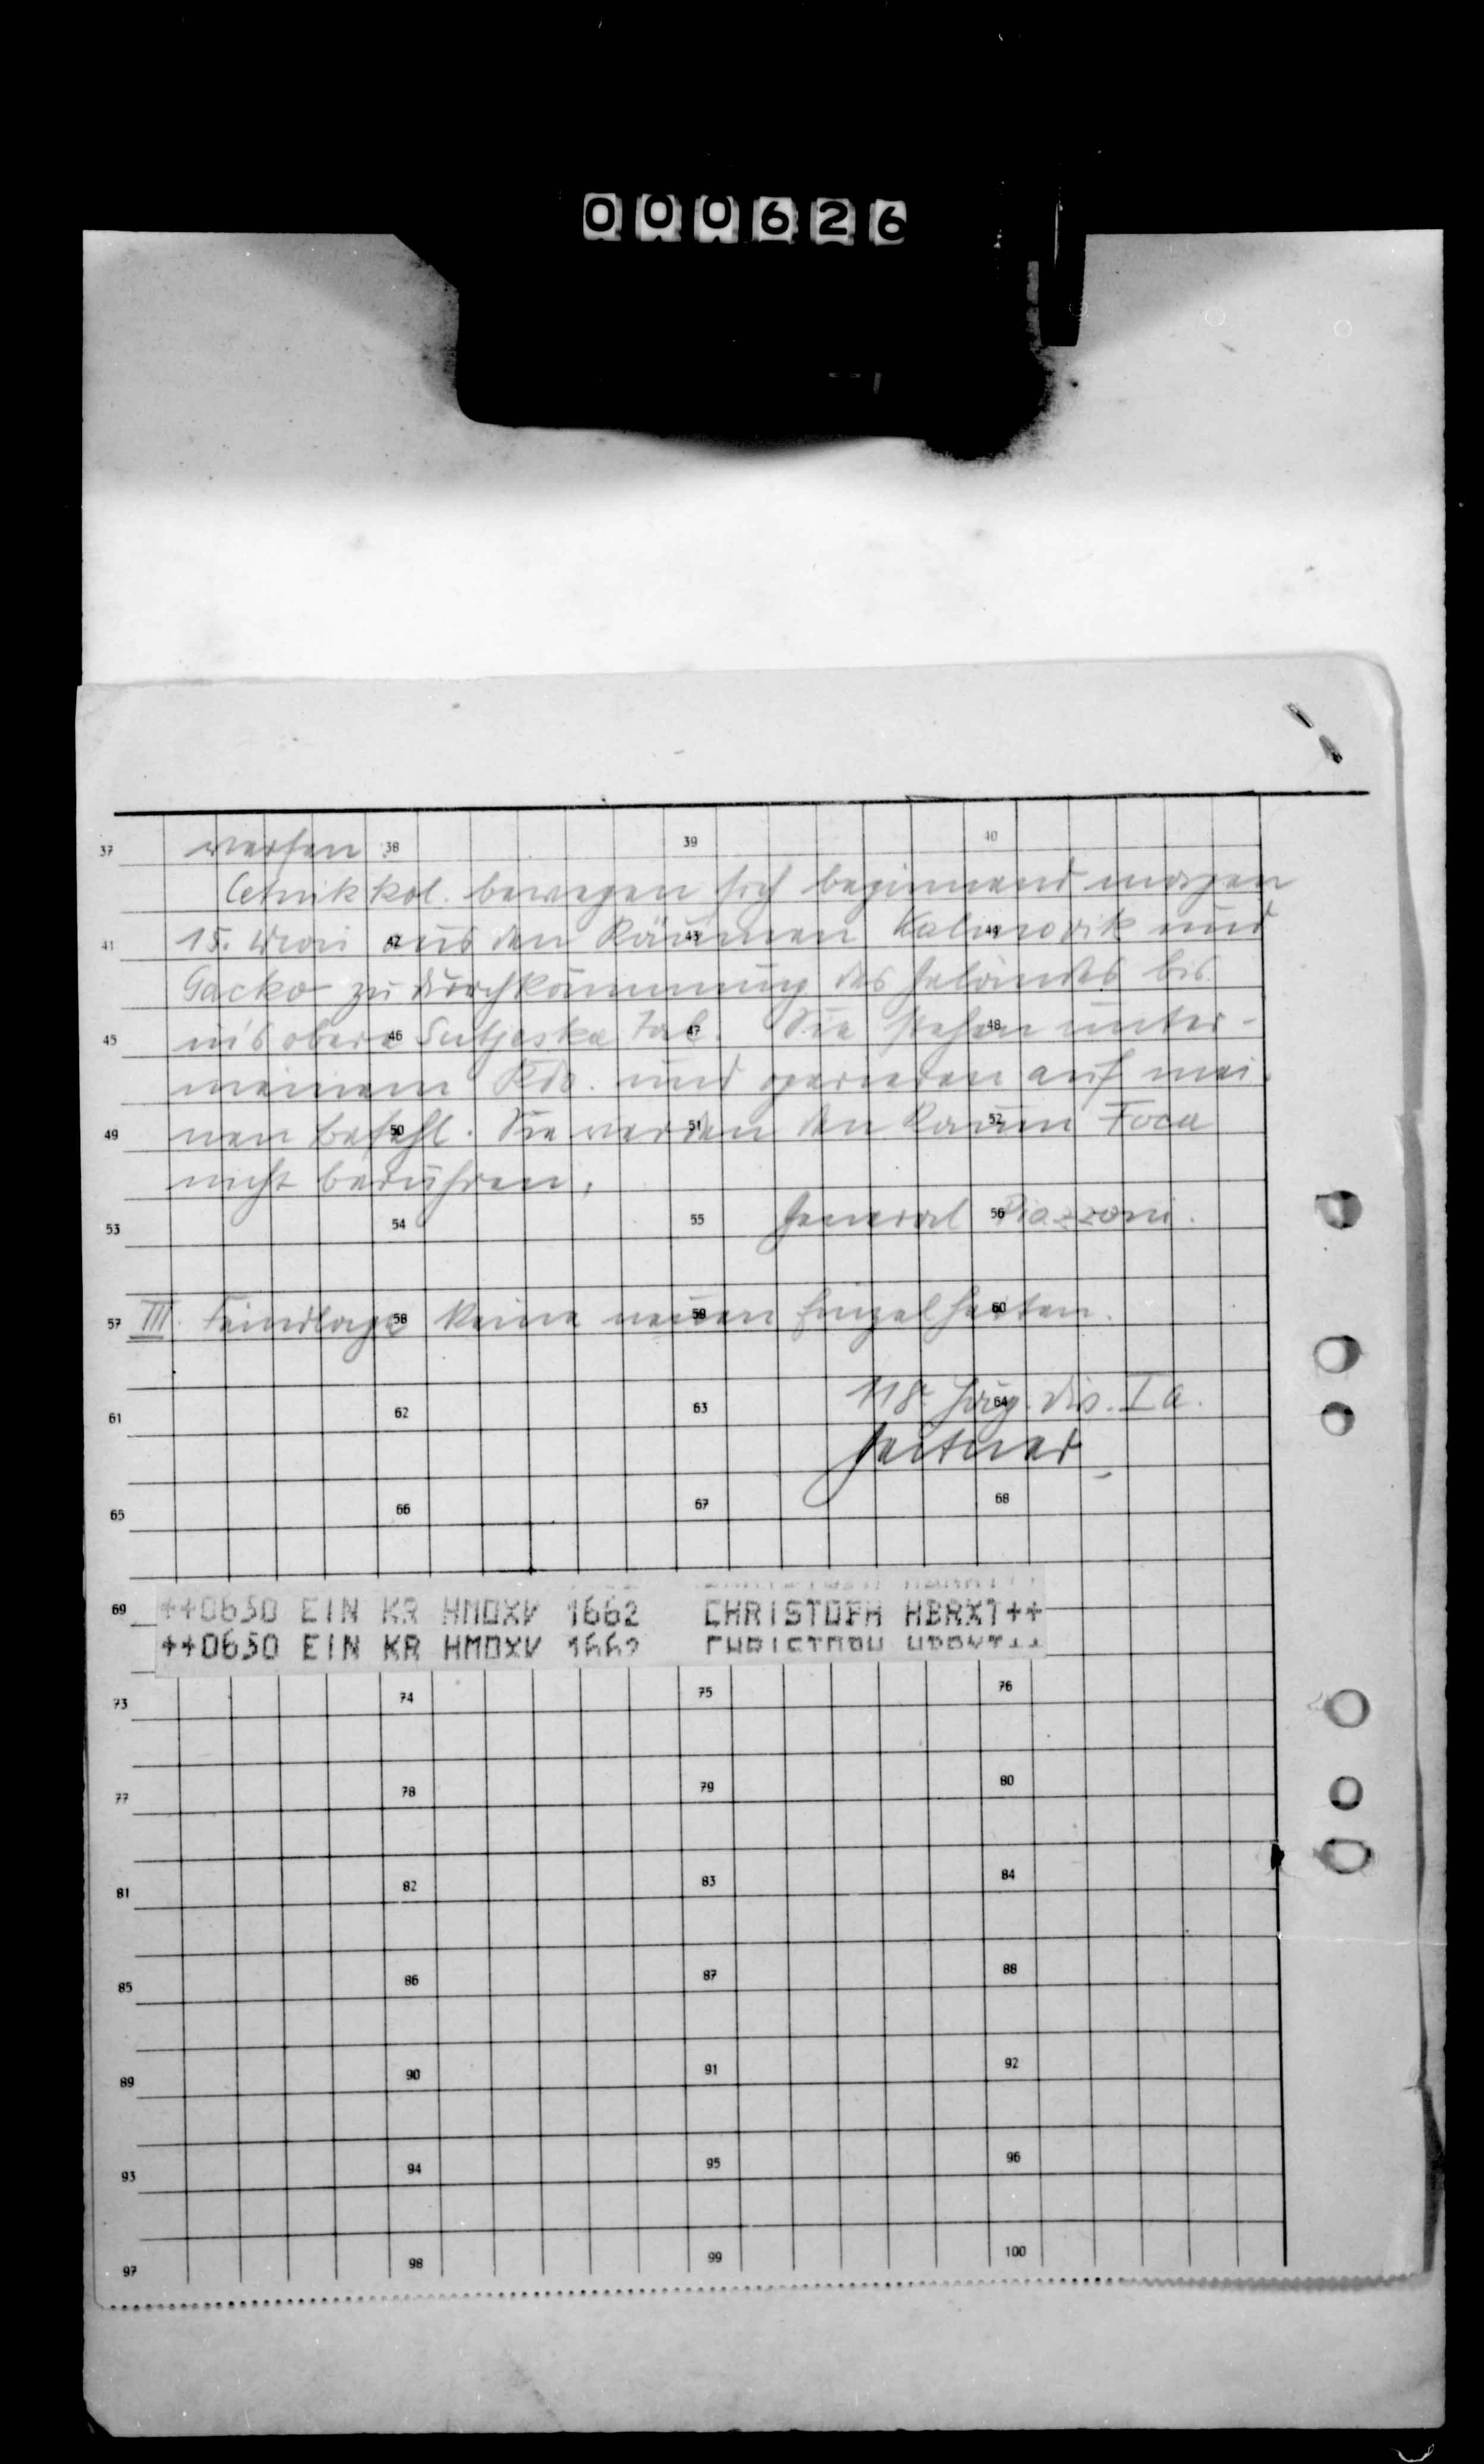 000626
37 werfen 38 39 40
Cetnik kol. bewegen sich beginnend morgen
41 15. Mai 42 aus den Räumen 43 Kalinovik 44 und
Gacko zu Durchkämmung des Geländes bis
45 ins obere 46 Sutjeska Tal. 47 Sie stehen 48 unter-
meinem Kdo. und operieren auf mei-
49 nen Befehl. 50 Sie werden 51 den Raum 52 Foca
nicht berühren.
53 54 55 General 56 Piazzoni.
57 III. Feindlage 58 keine neuen 59 Einzelheiten. 60
61 62 63 118. Jäg. 64 Div. Ia.
65 66 67 68
69 ++0650 EIN KR HMDXV 1662 CHRISTOPH HBRXT++
++0650 EIN KR HMDXV 1662 CHRISTOPH HBRXT++
73 74 75 76
77 78 79 80
81 82 83 84
85 86 87 88
89 90 91 92
93 94 95 96
97 98 99 100